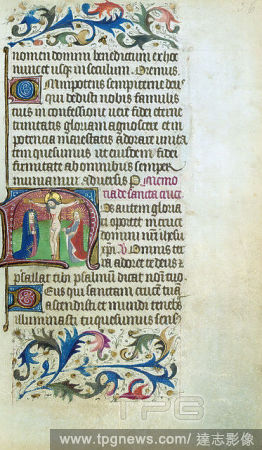 nomen domini benedictum ex hoc
nunc et usq; in seculum. Oremus
Omnipotens sempiterne de
qui dedisti nobis famulis
tuis in confessione vere fidei eterne
trinitatis gloriam agnoscere et in
potencia maiestatis adorare unita
tem quesumus ut eiusdem fidei
firmitate ab omnibus semper
muniamur adversis Memo
ria de sancta cruce
os autem gloria
ri oportet in cruce
domini
Omnis ter
ra adoret te deus et
psallat tibi psalmum dicat nomini tuo
Deus qui sanctam crucem tuam
ascendisti et mundi tenebras
illuminasti te quesumus
TPG
www.tpgnews.com / 達志影像